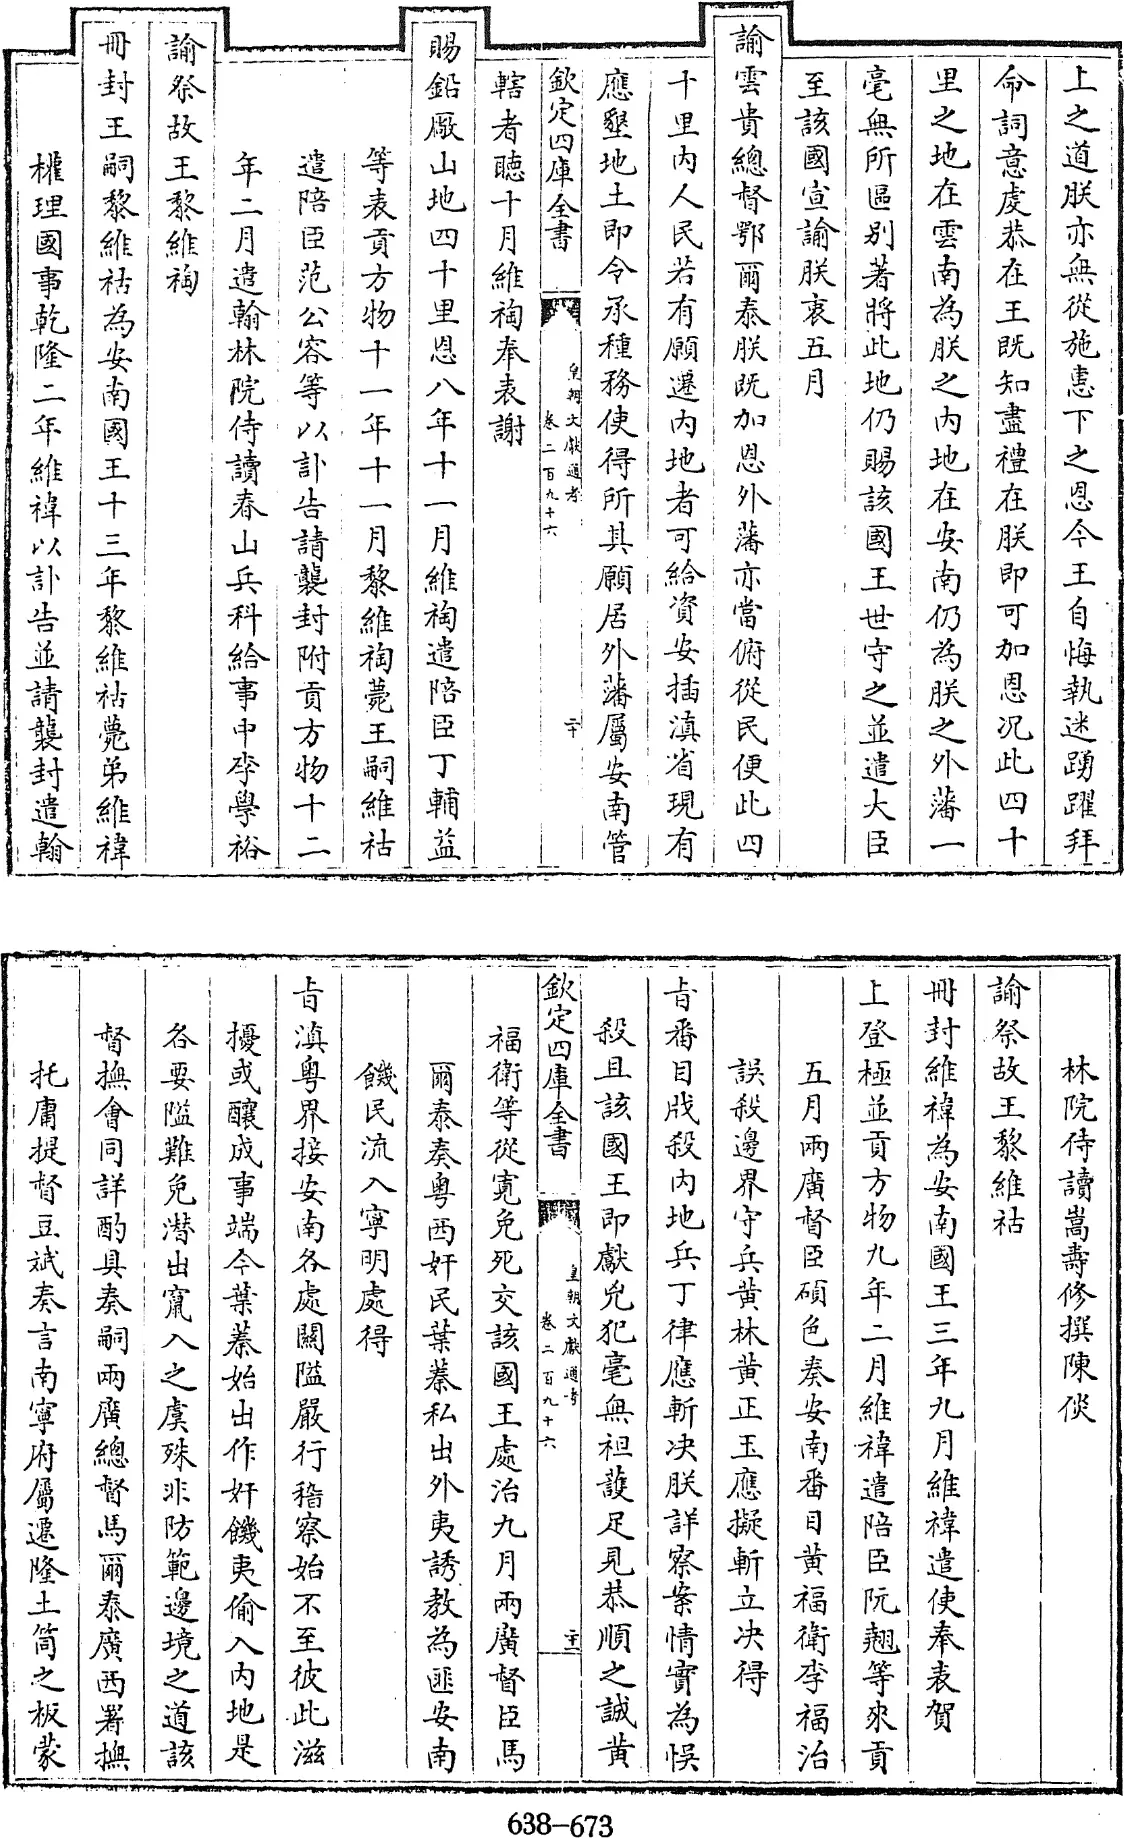 上之道朕亦無從施惠下之恩今王自悔執迷踴躍拜
命詞意虔恭在王既知盡禮在朕即可加恩况此四十
里之地在雲南為朕之内地在安南仍為朕之外藩一
毫無所區别著將此地仍賜該國王世守之並遣大臣
至該國宣諭朕衷五月
諭雲貴總督鄂爾泰朕既加恩外藩亦當俯從民便此四
十里内人民若有願遷内地者可給資安插滇省現有
應墾地土即令承種務使得所其願居外藩屬安南管
欽定四庫全書
皇朝文獻通考
卷二百九十六
二十
轄者聽十月維祹奉表謝
賜鉛厰山地四十里恩八年十一月維祹遣陪臣丁輔益
等表貢方物十一年十一月黎維祹薨王嗣維祜
遣陪臣范公容等以訃告請襲封附貢方物十二
年二月遣翰林院侍讀春山兵科給事中李學裕
諭祭故王黎維祹
冊封王嗣黎維祜為安南國王十三年黎維祜薨弟維禕
權理國事乾隆二年維禕以訃告並請襲封遣翰
林院侍讀嵩壽修撰陳倓
諭祭故王黎維祜
冊封維禕為安南國王三年九月維禕遣使奉表賀
上登極並貢方物九年二月維禕遣陪臣阮翹等來貢
五月兩廣督臣碩色奏安南番目黄福衛李福治
誤殺邊界守兵黄林黄正玉應擬斬立决得
旨番目戕殺内地兵丁律應斬决朕詳察案情實為悞
殺且該國王即獻兇犯毫無袒護足見恭順之誠黄
欽定四庫全書
皇朝文獻通考
卷二百九十六
二十一
福衛等從寛免死交該國王處治九月兩廣督臣馬
爾泰奏粤西奸民葉蓁私出外夷誘教為匪安南
饑民流入寧明處得
旨滇粤界接安南各處關隘嚴行稽察始不至彼此滋
擾或釀成事端今葉蓁始出作奸饑夷偷入内地是
各要隘難免潜出竄入之虞殊非防範邊境之道該
督撫會同詳酌具奏嗣兩廣總督馬爾泰廣西署撫
托庸提督豆斌奏言南寧府屬遷隆土峝之板蒙
638-673